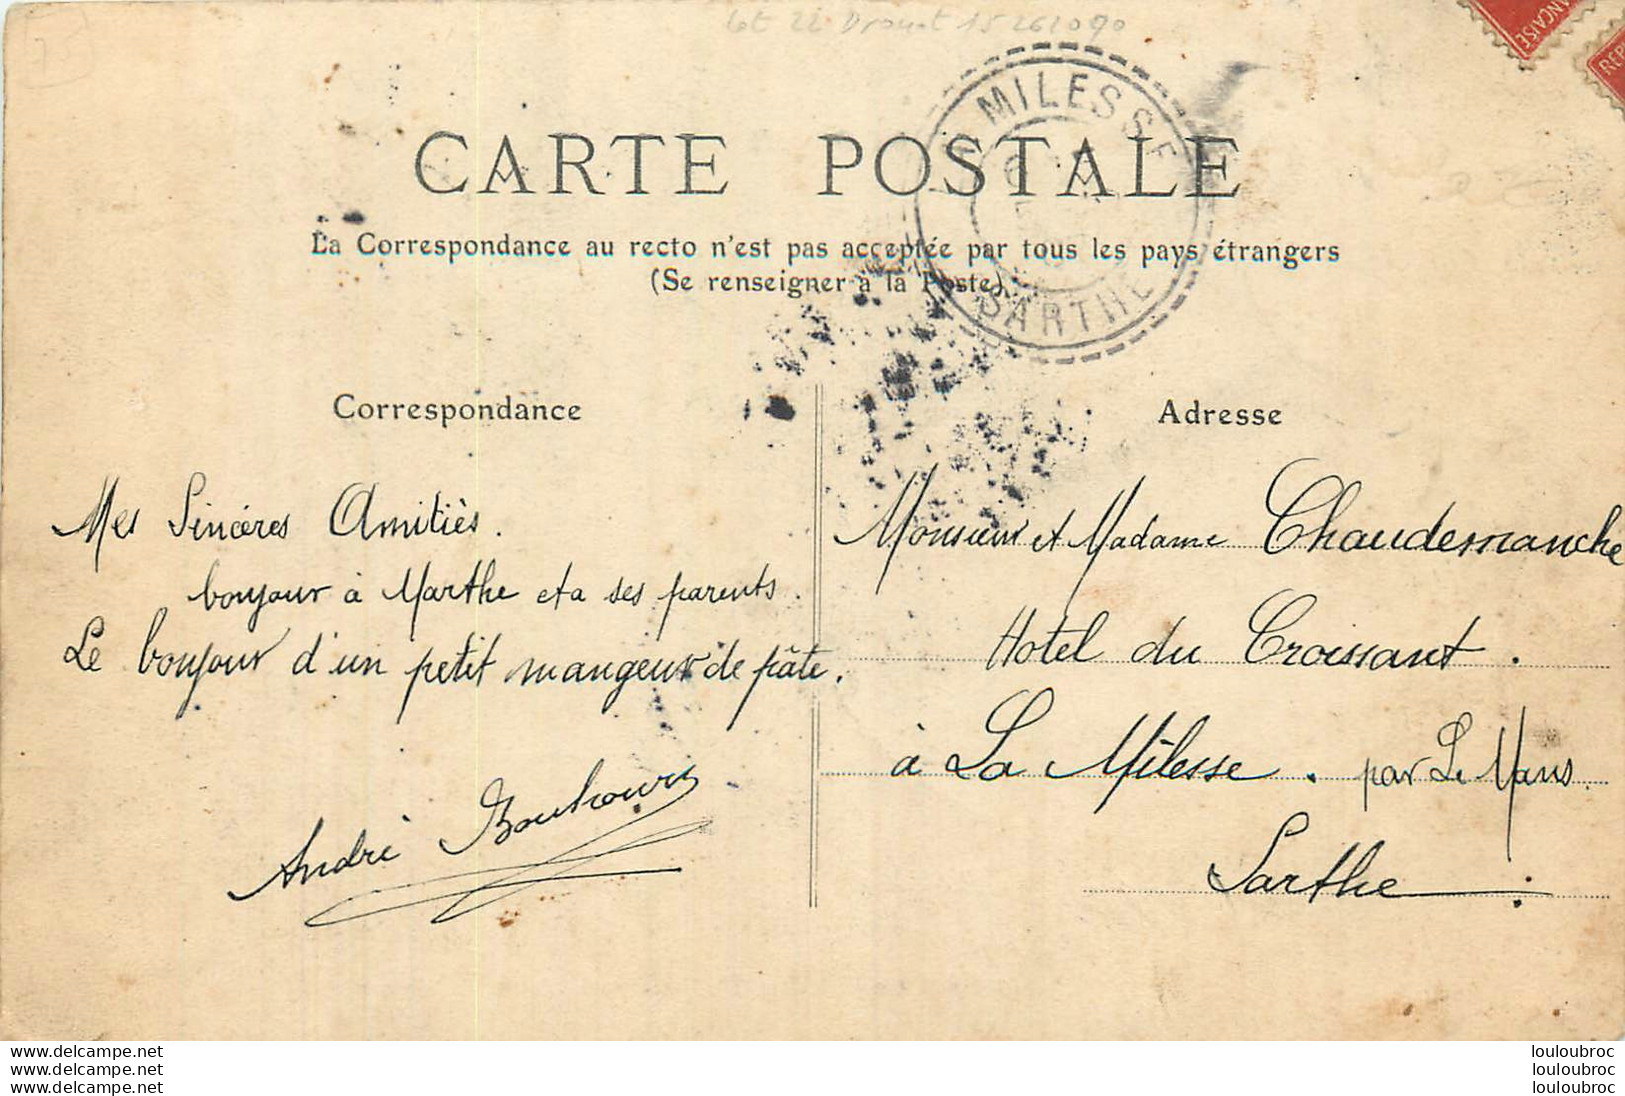 Lot 22 Drouot 15 261090
MILESSE
SARTHE
FRANÇAISE
REP
CARTE POSTALE
La Correspondance au recto n'est pas acceptée par tous les pays étrangers
(Se renseigner à la Poste)
Correspondance
Mes Sincères Amitiés.
bonjour à Marthe et a ses parents.
Le bonjour d'un petit mangeur de pâte.
André Bouhours
Adresse
Monsieur et Madame Chaudemanche
Hotel du Croissant.
à La Milesse. par Le Mans.
Sarthe
www.delcampe.net
www.delcampe.net
www.delcampe.net
louloubroc
louloubroc
louloubroc